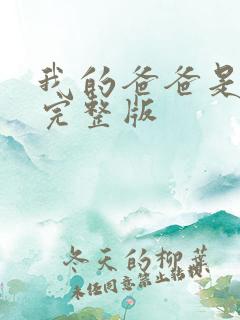 我的爸爸是
完整版
冬天的柳葉
未经同意禁止转载